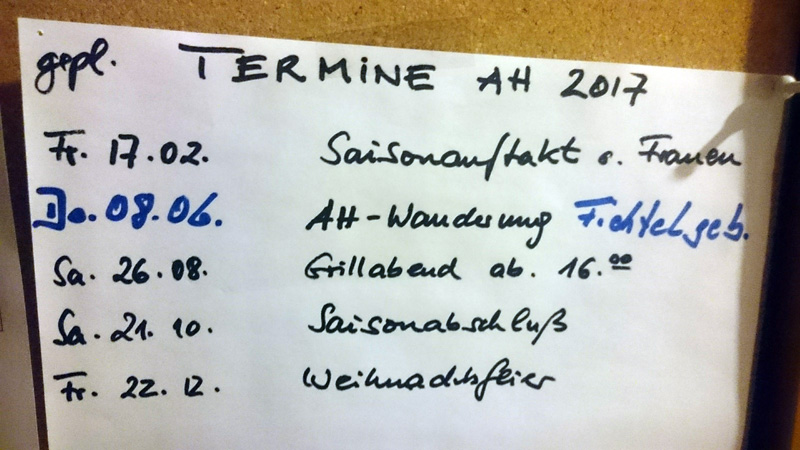 gepl. TERMINE AH 2017
Fr. 17.02. Saisonauftakt o. Frauen
Do. 08.06. AH-Wanderung Fichtelgeb.
Sa. 26.08. Grillabend ab. 16.00
Sa. 21.10. Saisonabschluß
Fr. 22.12. Weihnachtsfeier